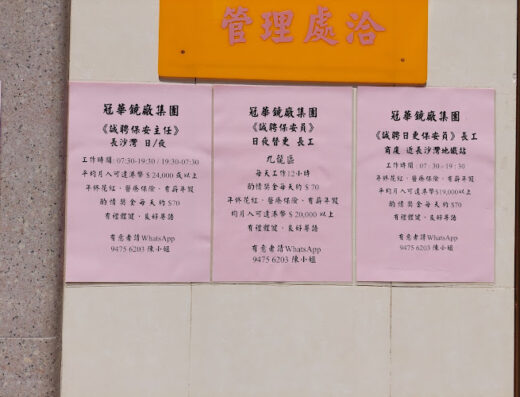 管理處洽
冠華鏡廠集團
《誠聘保安主任》
長沙灣 日/夜
工作時間：07:30-19:30 / 19:30-07:30
平均月入可達港幣＄24,000 或以上
年終花紅、醫療保險、有薪年假
酌情獎金每天約＄70
有禮體健、良好粵語
有意者請WhatsApp
9475 6203 陳小姐
冠華鏡廠集團
《誠聘保安員》
日夜替更 長工
九龍區
每天工作12小時
酌情獎金每天約＄70
年終花紅、醫療保險、有薪年假
均月入可達港幣＄20,000以上
有禮體健、良好粵語
有意者請WhatsApp
9475 6203 陳小姐
冠華鏡廠集團
《誠聘日更保安員》長工
商廈 近長沙灣地鐵站
工作時間：07:30-19:30
年終花紅、醫療保險、有薪年假
平均月入可達港幣$19,000以上
酌情獎金每天約$70
有禮體健、良好粵語
有意者請WhatsApp
9475 6203 陳小姐